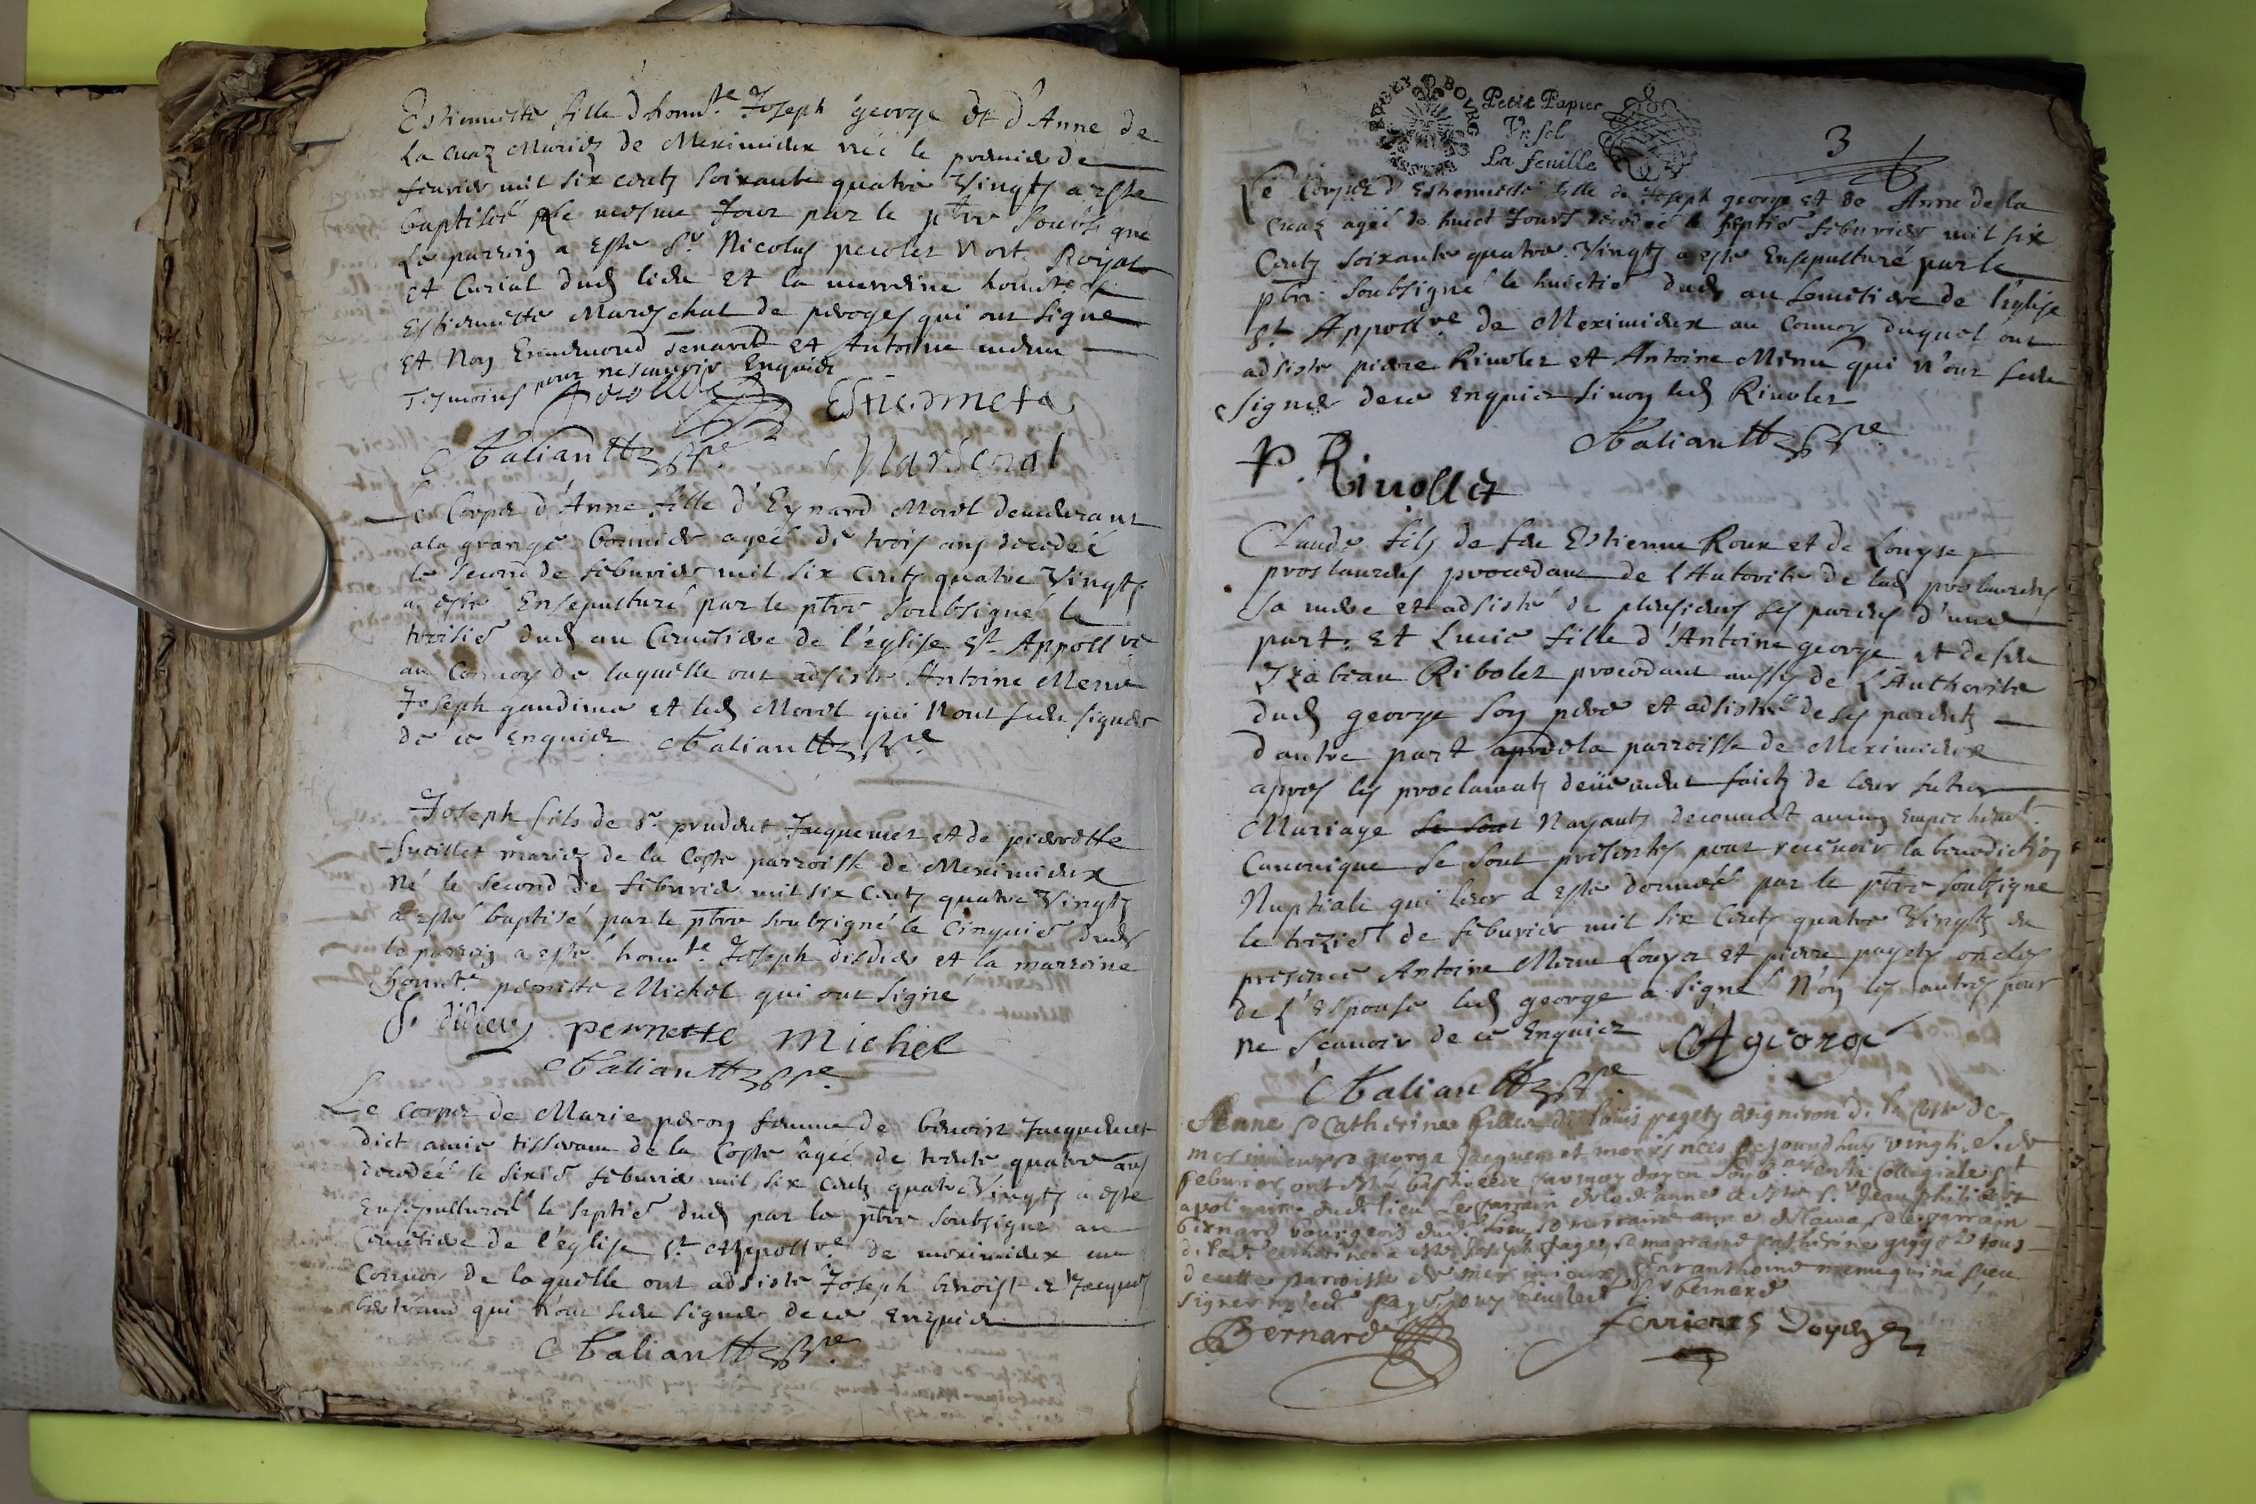 Estiennette fille d'honn.te Joseph george et d'Anne de
La cuaz Mariez de Meximieux née le premier de
feuvrier mil six centz soixante quatre Vingtz a esté
baptiseé le mesme Jour par le pbre soubsigné
Le parrein a esté Sr Nicolas perolet Not. Royal
et Curial dud lieu et la marreine honn.te
Estiennette Mareschal de peroges qui ont signé
Et Non Ennemond Tenard et Antoine
Tesmoins pour ne scavoir Enquis
Perollet Estienneta
Taliantz pbre Mareschal
Le Corps d'Anne fille d'Eynard Morel demeurant
a la grange bonnier ageé de trois ans decedeé
le second de feburier mil six centz quatre Vingtz
a esté Ensepulturé par le pbre soubsigné le
troisie dud au Cemetiere de l'eglise St Appoll.re
au Convoy de laquelle ont adsisté Antoine Meme
Joseph gaudimer et led Morel qui n'ont sceu signer
de ce Enquis Taliantz pbre
Joseph fils de Sr prudent Jacquemet et de pierrette
mariez de la Coste parroisse de Meximieux
Né le second de feburier mil six centz quatre Vingtz
a esté baptisé par le pbre soubsigné le Cinquie dud
le parrein a esté honn.te Joseph didier et la marreine
honn.te pernette Michel qui ont signé
J. didier pernette michel
Taliantz pbre
Le corps de Marie peron femme de benoist Jacquemet
dict amie tisserant de la Coste âgeé de trente quatre ans
decedeé le sixie feburier mil six centz quatre Vingtz a esté
Ensepultureé le septie dud par le pbre soubsigné au
Cemetiere de l'eglise St Appoll.re de meximieux au
Convoy de laquelle ont adsisté Joseph benoist et Jacques
bertrand qui n'ont sceu signer de ce enquis
Taliantz pbre
BVGEY BOVRG
Petit Papier
Vn sol
La feuille
3
Le Corps d'Estiennette fille de Joseph george et de Anne de la
Cuaz ageé de huict Jours decedeé le septie feburier mil six
Centz soixante quatre Vingtz a esté Ensepulturé par le
pbre soubsigné le huictie dud au Cemetiere de l'eglise
St Appoll.re de Meximieux au Convoy duquel ont
adsisté pierre Rivolet et Antoine Meme qui n'ont sceu
signer de ce enquis sinon led Rivolet
Taliantz pbre
P. Rivollet
Claude fils de feu Estienne Roux et de Louyse
proslaurens procedant de l'Autorité de lad proslaurens
sa mere et adsisté de plusieurs ses parens d'une
part. et Lucie fille d'Antoine george et de feu
Izabeau Ribolet procedant aussy de L'Authorité
dud george son pere et adsisté de ses parentz
d'autre part de la parroisse de Meximieux
apres les proclamatz deüement faictz de leur futur
Mariage se sont N'ayantz decouvert aucun Empechemt.
Canonique se sont presentés pour recevoir la benediction
Nuptiale qui leur a esté donneé par le pbre soubsigné
le trezie de feburier mil six centz quatre Vingtz en
presence Antoine Meme Louys et pierre pagetz oncles
de l'Espouse led george a signé Non les autres pour
ne Scavoir de ce Enquis A george
Taliantz pbre
Anne & Catherine filles de louis pagetz vigneron de la Coste de
meximieux & george Jacquemet mariés nees Ce jourdhuy vingt
feburier ont esté baptisees par moy doyen soub.né en la Collegiale St
apolinaire dudt lieu Le parrain de lad anne a esté Sr Jean philibert
Bernard bourgeois dudt lieu & marraine anne & le parrain
de lad. catherine a esté Joseph pagetz & marraine catherine tous
de cette paroisse de meximieux Enr anthoine meme qui n'a sceu
signer ny led pagetz ouy bien led Sr bernard
Bernard ferrieres doyen